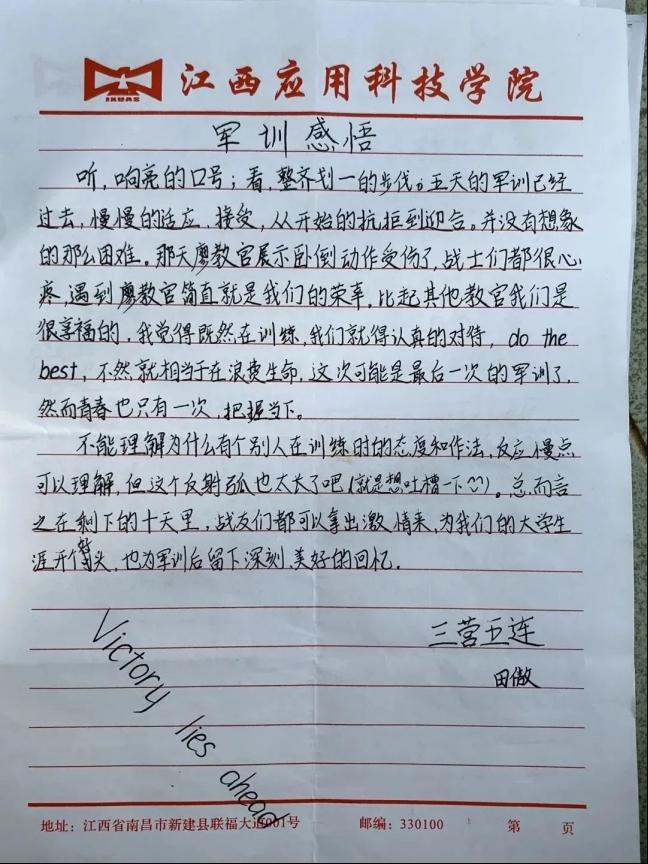 JXUAS
江西应用科技学院
军训感悟
听,响亮的口号;看,整齐划一的步伐。五天的军训已经
过去,慢慢的适应、接受,从开始的抗拒到迎合。并没有想象
的那么困难。那天廖教官展示卧倒动作受伤了,战士们都很心
疼,遇到廖教官简直就是我们的荣幸,比起其他教官我们是
很享福的,我觉得既然在训练,我们就得认真的对待,do the
best,不然就相当于在浪费生命,这次可能是最后一次的军训了,
然而青春也只有一次,把握当下。
不能理解为什么有个别人在训练时的态度和作法,反应慢点
可以理解,但这个反射弧也太长了吧(就是想吐槽一下)。总而言
之在剩下的十天里,战友们都可以拿出激情来,为我们的大学生
涯开个好头,也为军训后留下深刻、美好的回忆.
三营五连
田傲
Victory lies ahead
地址:江西省南昌市新建县联福大道001号 邮编:330100 第 页